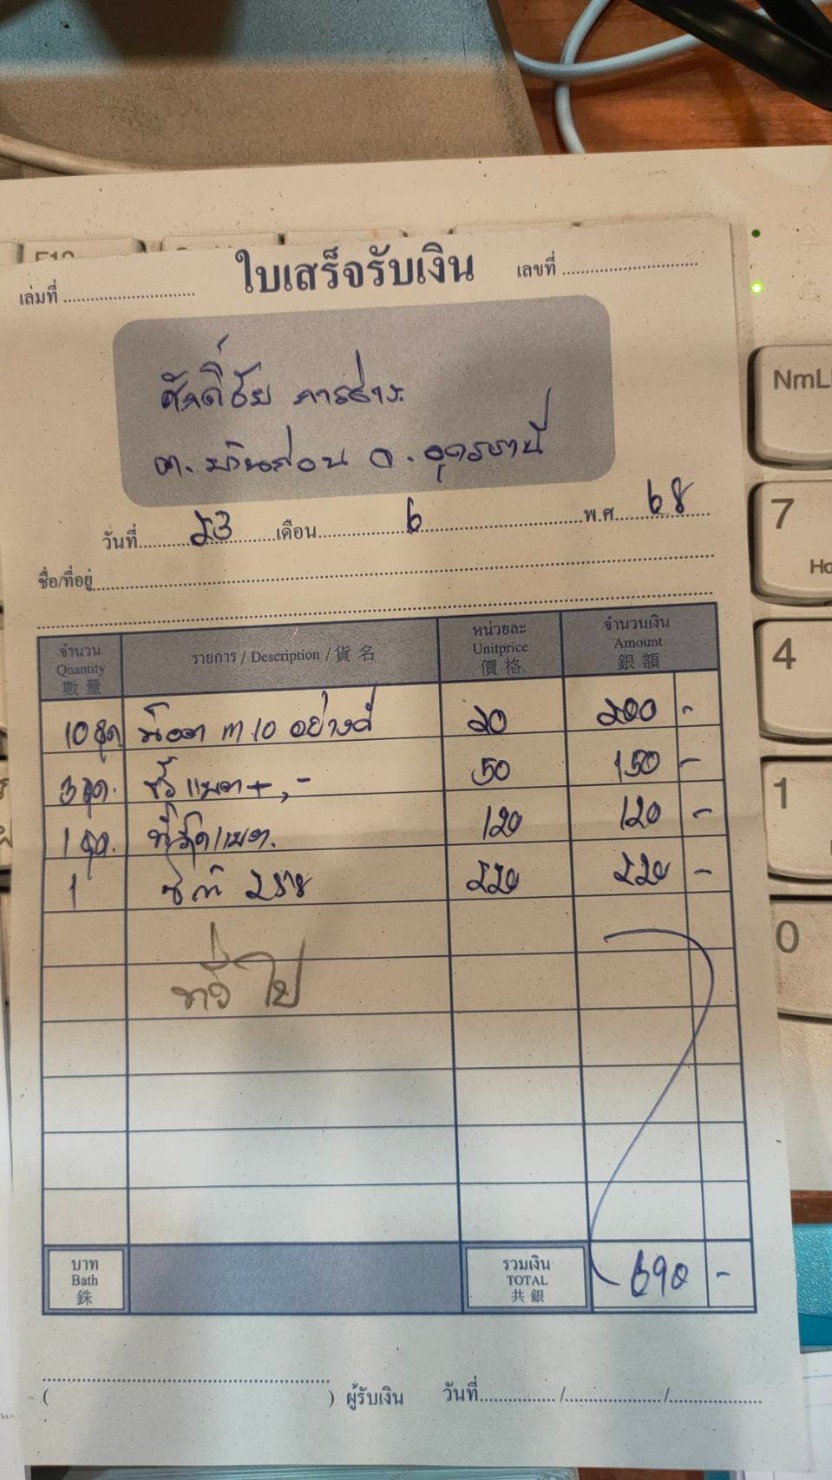 ใบเสร็จรับเงิน
เล่มที่ เลขที่
ศักดิ์ชัย การช่าง
ต. จ. อุดรธานี
วันที่ 23 เดือน 6 พ.ศ. 68
ชื่อ/ที่อยู่
จำนวน Quantity 數量 รายการ / Description / 貨名 หน่วยละ Unitprice 價格 จำนวนเงิน Amount 銀額
10 ชุด น๊อต m 10 อย่างดี 20 200 -
3 ชุด. แบต +, - 50 150 -
1 ชุด. ที่รัดแบต. 120 120 -
1 258 220 220 -
ทั่วไป
บาท Bath 銖 รวมเงิน TOTAL 共銀 690 -
( ) ผู้รับเงิน วันที่ / /
F10
NmL
7
Ho
4
1
0